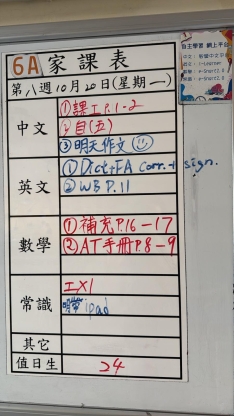 6A 家課表
第八週10月20日(星期一)
中文
①課工P.1-2
②自(五)
③明天作文
英文
①Dict+FA corr. + sign.
②WB P.11
數學
①補充P.16-17
②AT手冊P8-9
常識
工X1
ipad
其它
值日生
24
自主學習 網上平台